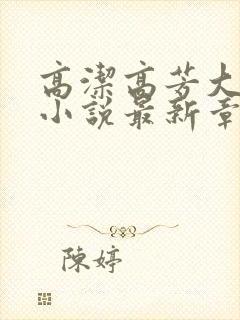 高潔高芳大
小說最新章
陳婷